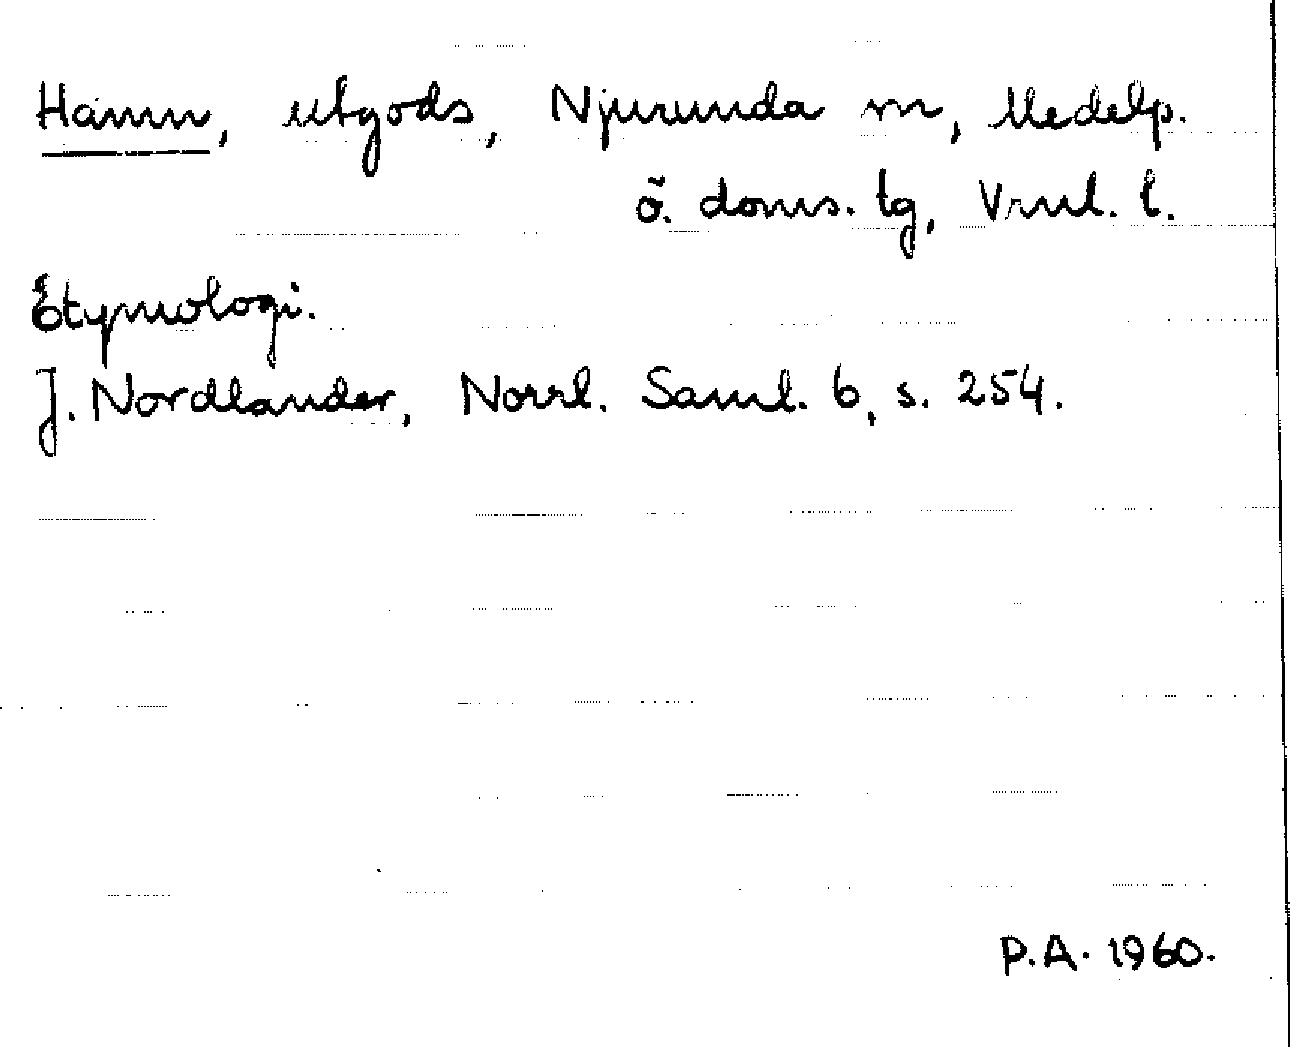 Hamn, utgods, Njurunda sn, Medelp.
ö. doms. tg, Vrnl. l.
Etymologi.
J. Nordlander, Norrl. Saml. 6, s. 254.
P.A. 1960.